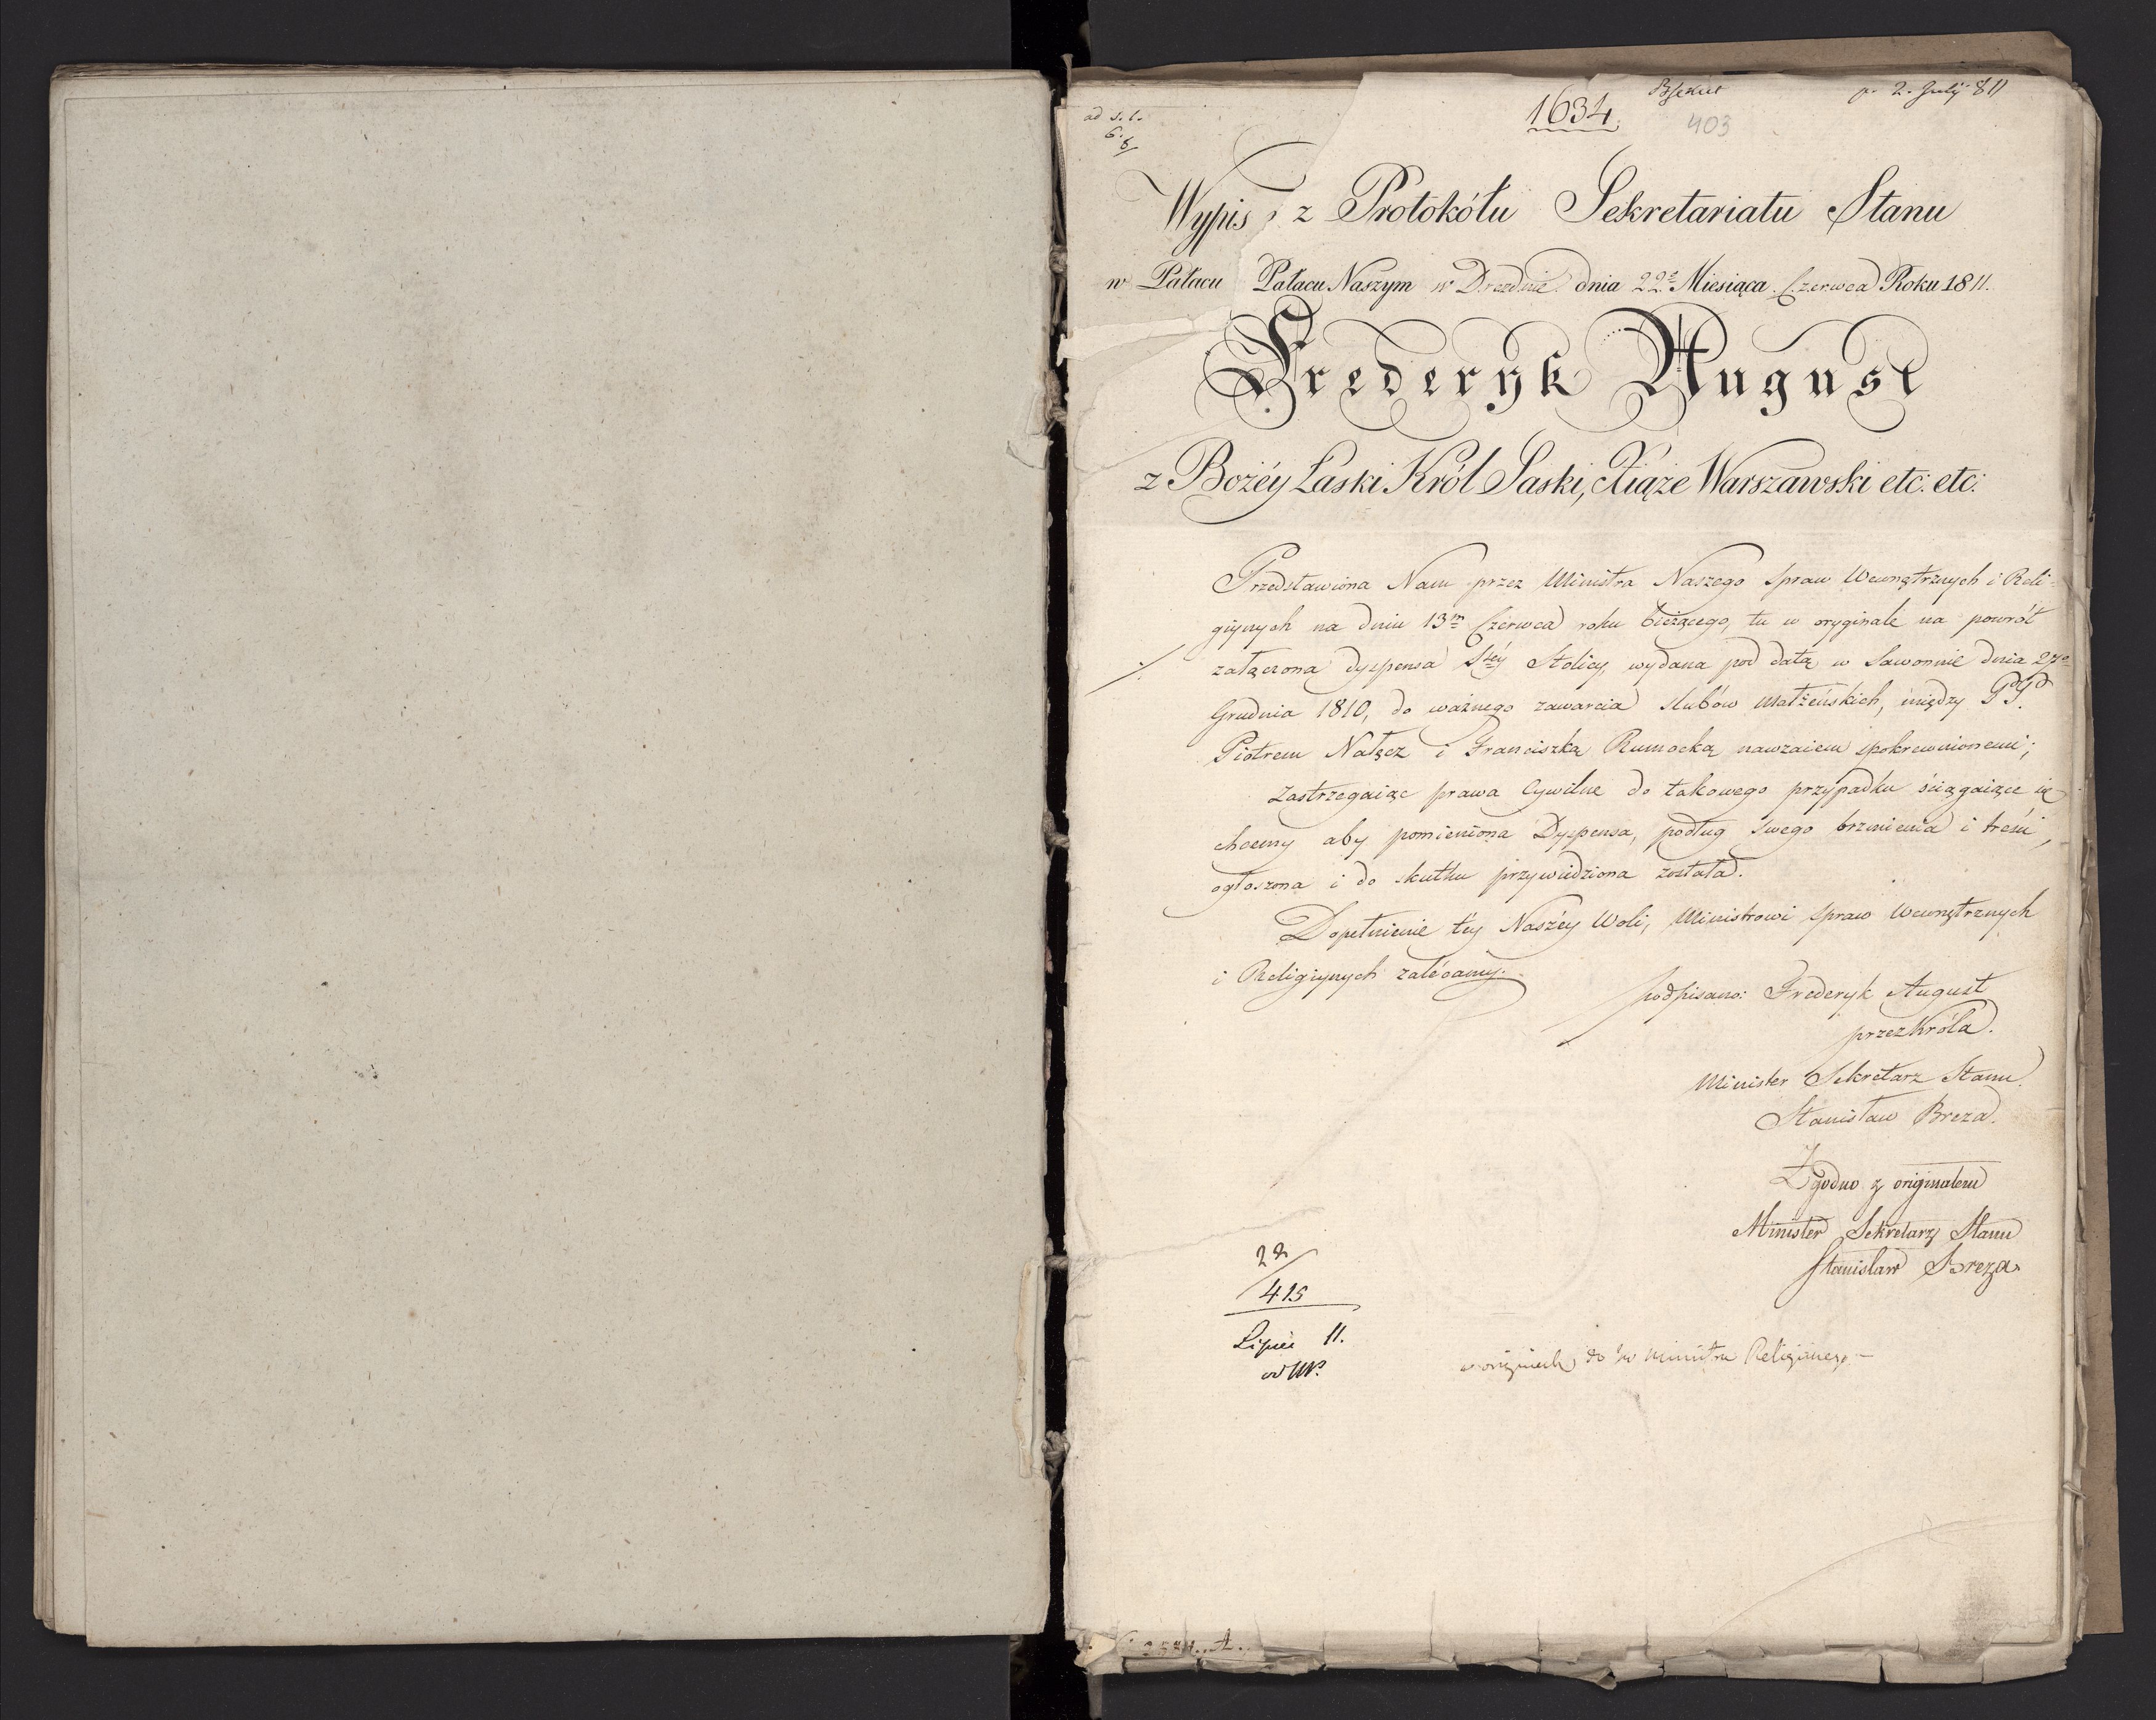 ad s. l.
6.
1634.
403
p. 2. July 811
Wypis z Protokółu Sekretariatu Stanu
w Pałacu Pałacu Naszym w Dreznie dnia 22º Miesiąca Czerwca Roku 1811.
Frederyk August
z Bożéy Łaski Król Saski, Xiąże Warszawski etc: etc:
Przedstawiona Nam przez Ministra Naszego Spraw Wewnętrznych i Reli-
giynych na dniu 13m Czerwca roku bieżącego, tu w oryginale na powrót
załączona dyspensa Stéy Stolicy, wydana pod datą w Sawonnie dnia 27º
Grudnia 1810, do ważnego zawarcia slubów małżeńskich, między PP.
Piotrem Nałęcz i Franciszką Rumocką nawzaiem spokrewnionemi;
Zastrzegaiąc prawa Cywilne do takowego przypadku ściągaiące się
chcemy aby pomieniona Dyspensa, podług swego brzmienia i treści,
ogłoszona i do skutku przywiedziona została.
Dopełnienie téy Naszéy Woli, Ministrowi Spraw Wewnętrznych
i Religiynych zalécamy.
podpisano: Frederyk August
przez Króla.
Minister Sekretarz Stanu.
Stanisław Breza.
Zgodno z originałem
Minister Sekretarz Stanu
Stanisław Breza
415
Lipiec 11.
do Ministra